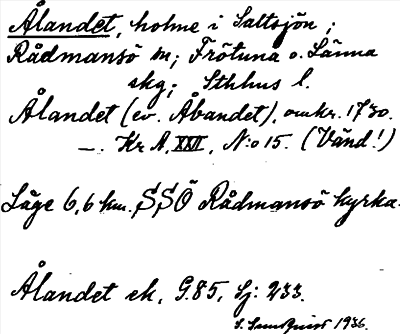 Ålandet, holme i Saltsjön ;
Rådmansö sn; Frötuna o. Länna
skg; Sthlms l.
Ålandet (ev. Åbandet), omkr. 1730.
—. Kr A, XXII, N:o 15. (Vänd!)
Läge 6,6 km. SSÖ Rådmansö kyrka.
Ålandet ek, G.85, Sj: 233.
S. Sundquist 1936.